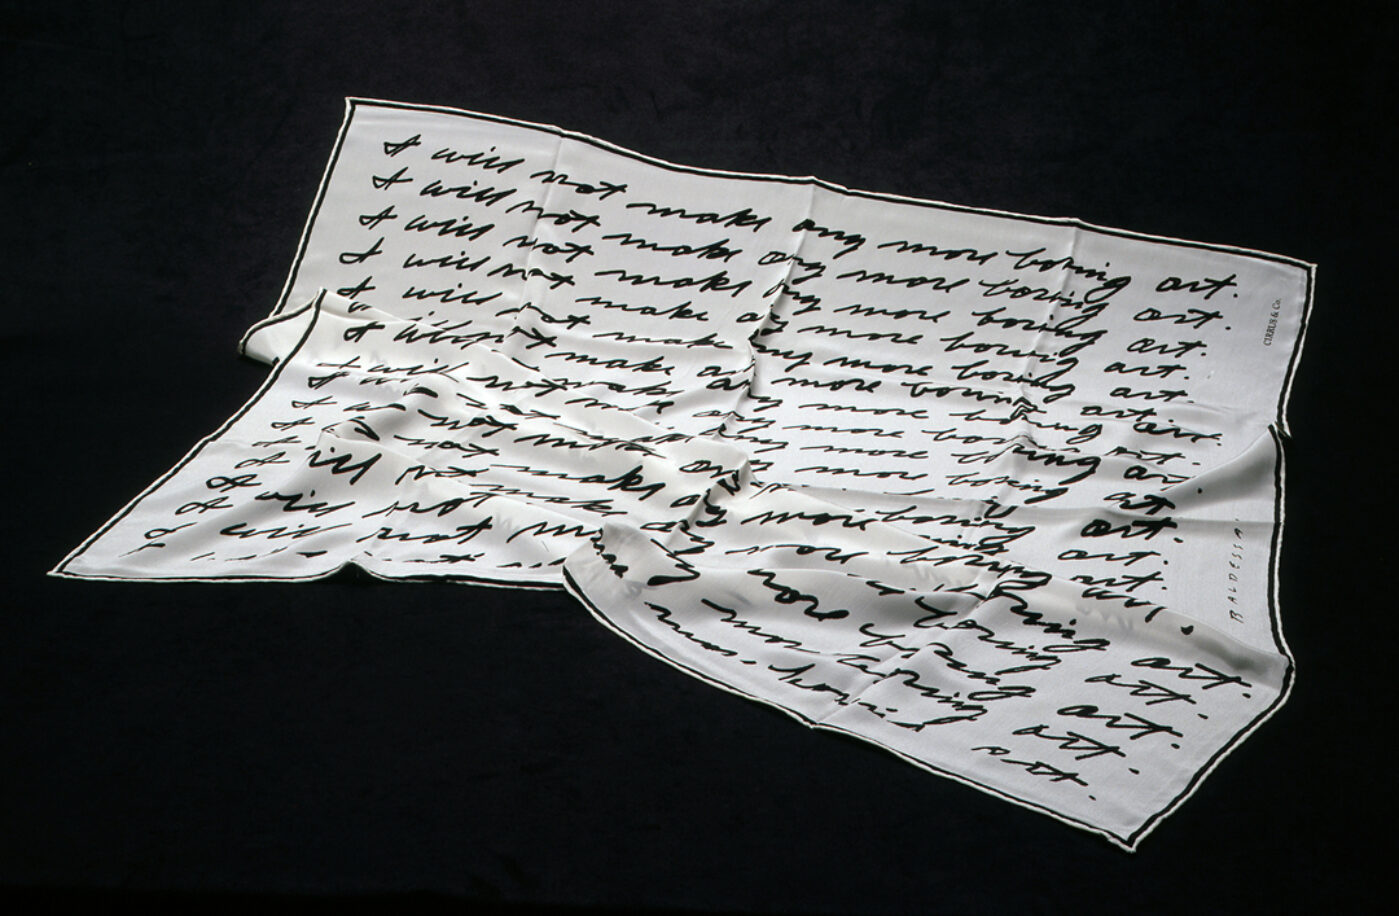 I will not make any more boring art.
I will not make any more boring art.
I will not make any more boring art.
I will not make any more boring art.
I will not make any more boring art.
I will not make any more boring art.
I will not make any more boring art.
I will not make any more boring art.
I will not make any more boring art.
I will not make any more boring art.
I will not make any more boring art.
I will not make any more boring art.
I will not make any more boring art.
I will not more boring art.
CIRRUS & Co.
BALDESSA